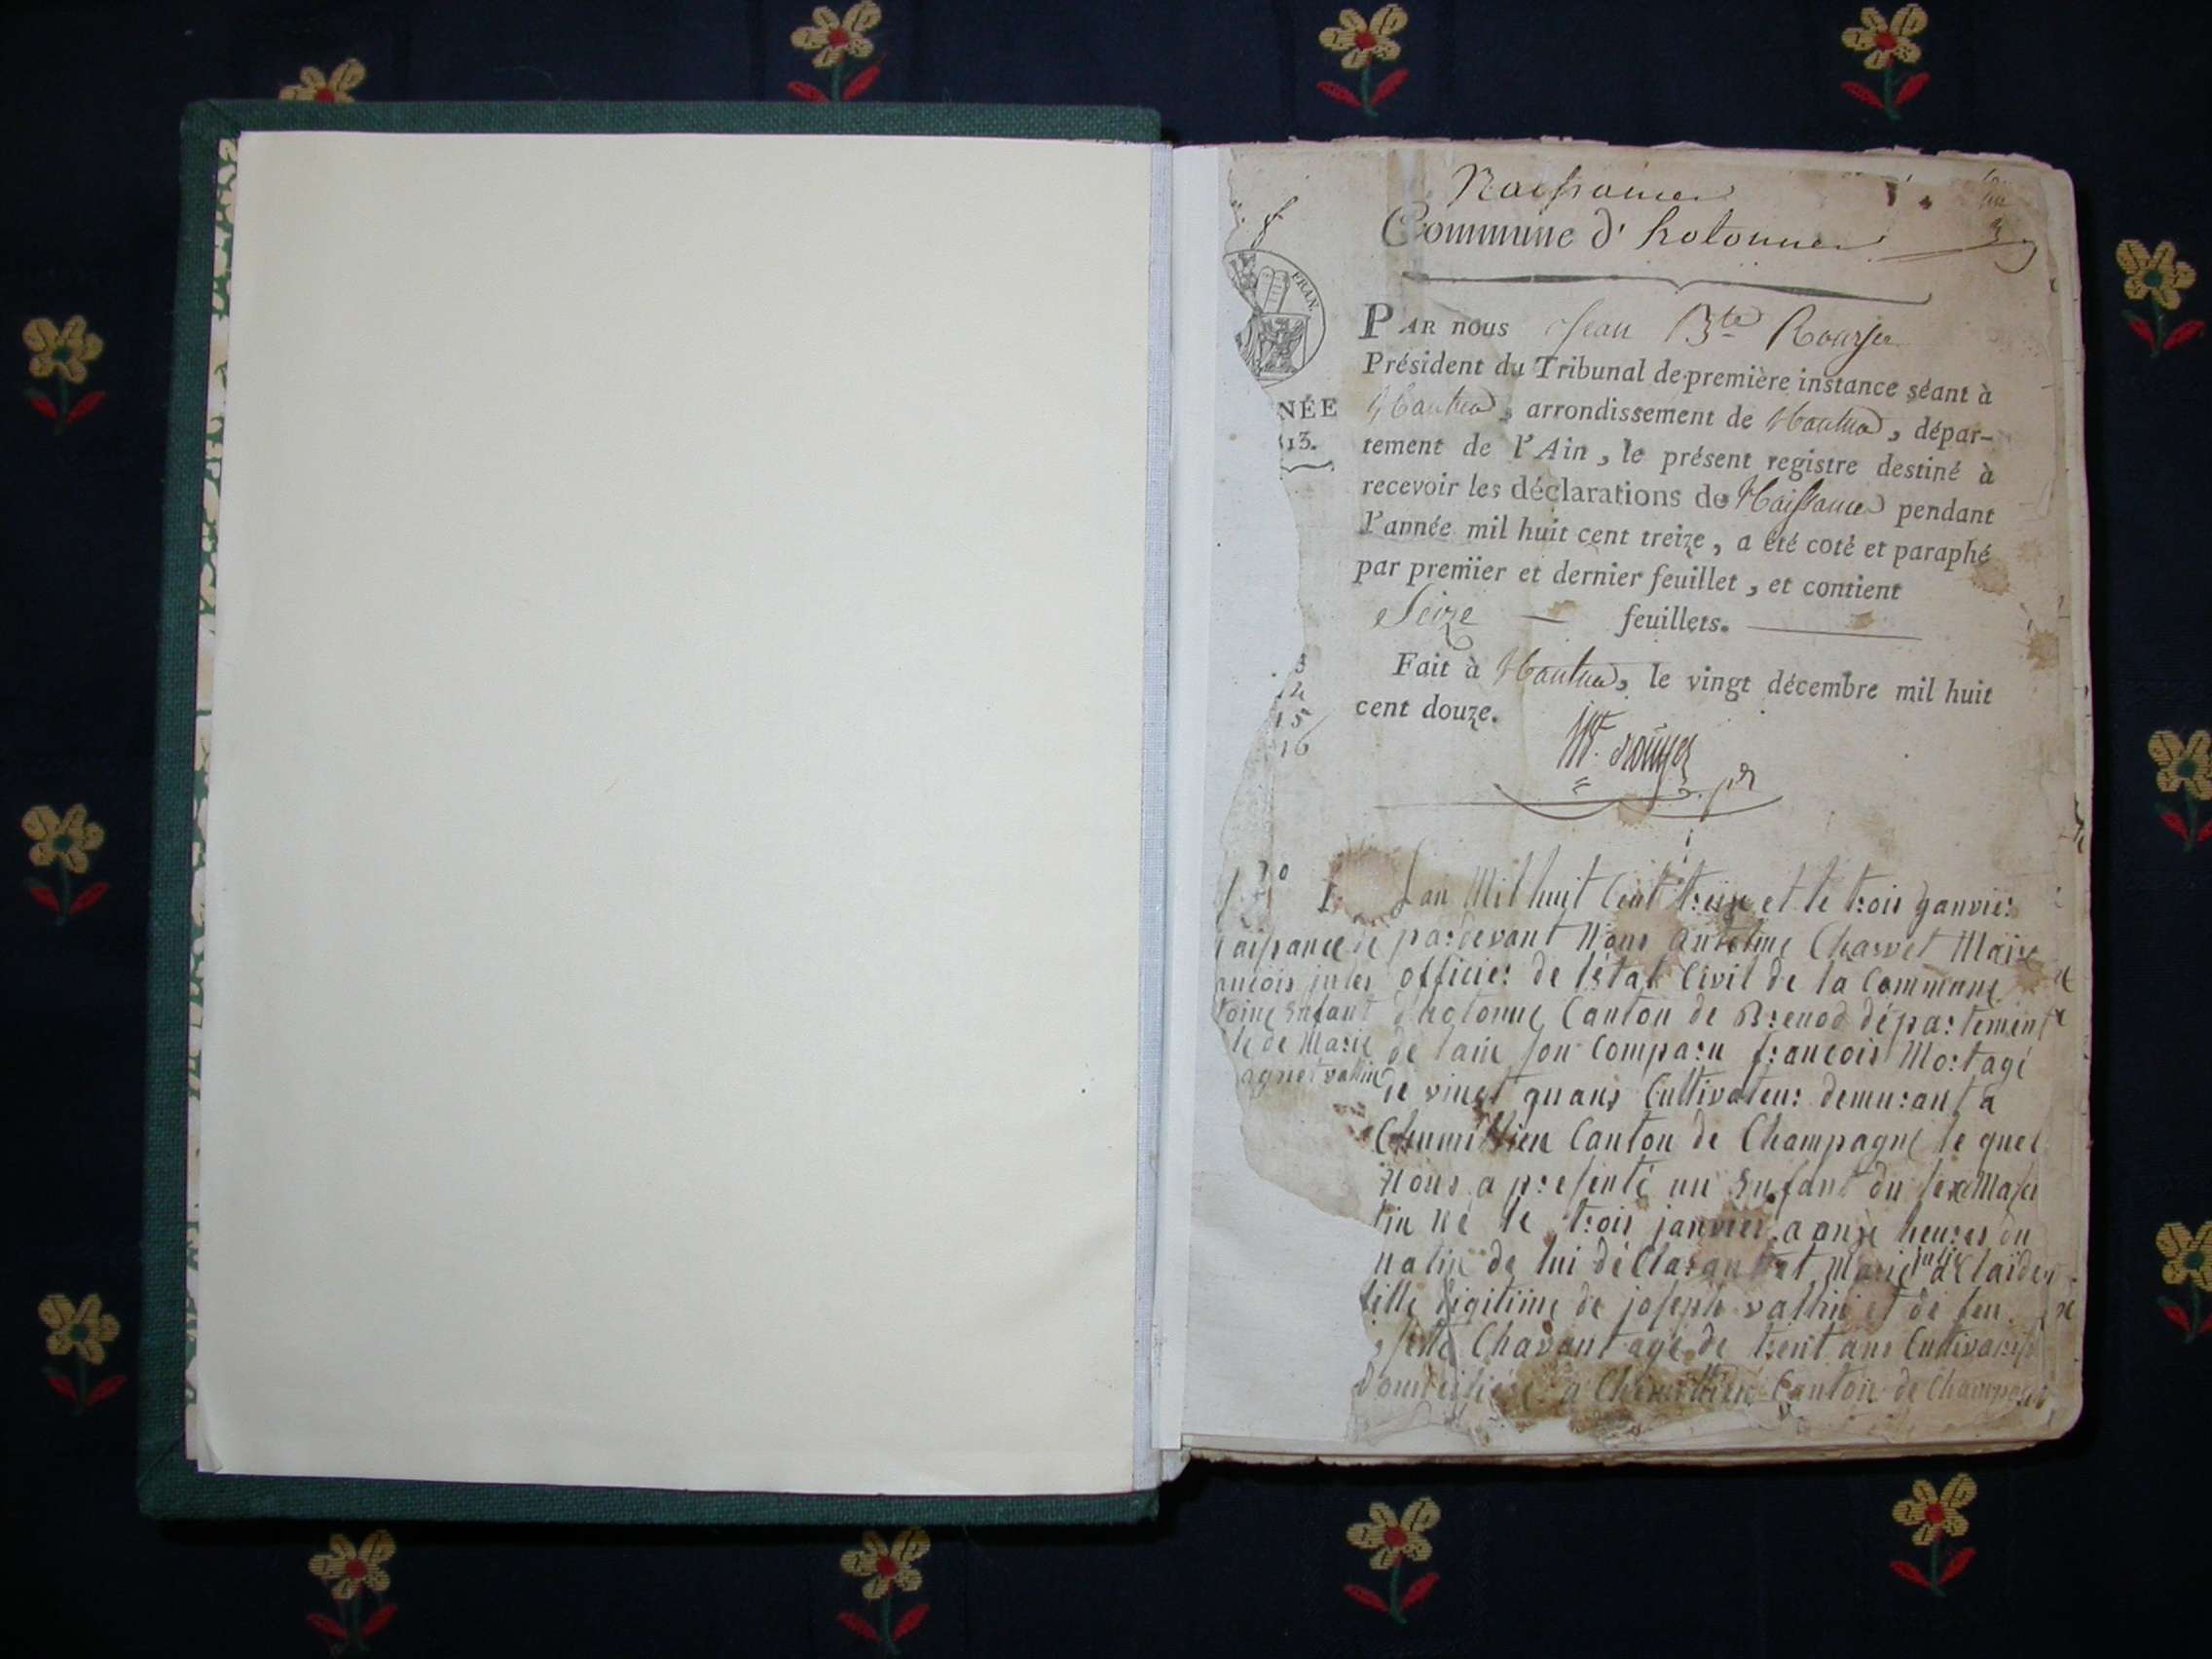 Naissances
Commune d' hotonnes
FRAN.
PAR nous Jean Bte Rouyer
Président du Tribunal de première instance séant à
NÉE
Nantua, arrondissement de Nantua, dépar-
13.
tement de l'Ain, le présent registre destiné à
recevoir les déclarations de Naissances pendant
l'année mil huit cent treize, a été coté et paraphé
par premier et dernier feuillet, et contient
Seize feuillets.
Fait à Nantua, le vingt décembre mil huit
cent douze.
15
16
Lan Mil huit Cent treize et le trois ganvier
pardevant Nous antelme Charvet Maire
officier de létat Civil de la Commune
dhotonne Canton de Brenod département
de lain son Comparu francois Mortagé
de vinct quans Cultivateur demurant a
Chumillien Canton de Champagne le quel
Nous a presenté un Enfant du sexe Mascu
lin né le trois janvier a onze heures du
matin de lui déClarant et Marie julie aClaïde
fille légitime de joseph vallin et de feu
Chavant agé de trent ans Cultivatrise
Domiciliée a Chemillien Canton de Champagne
aissance de
ancois jules
toine Enfant
de Marie
vallin